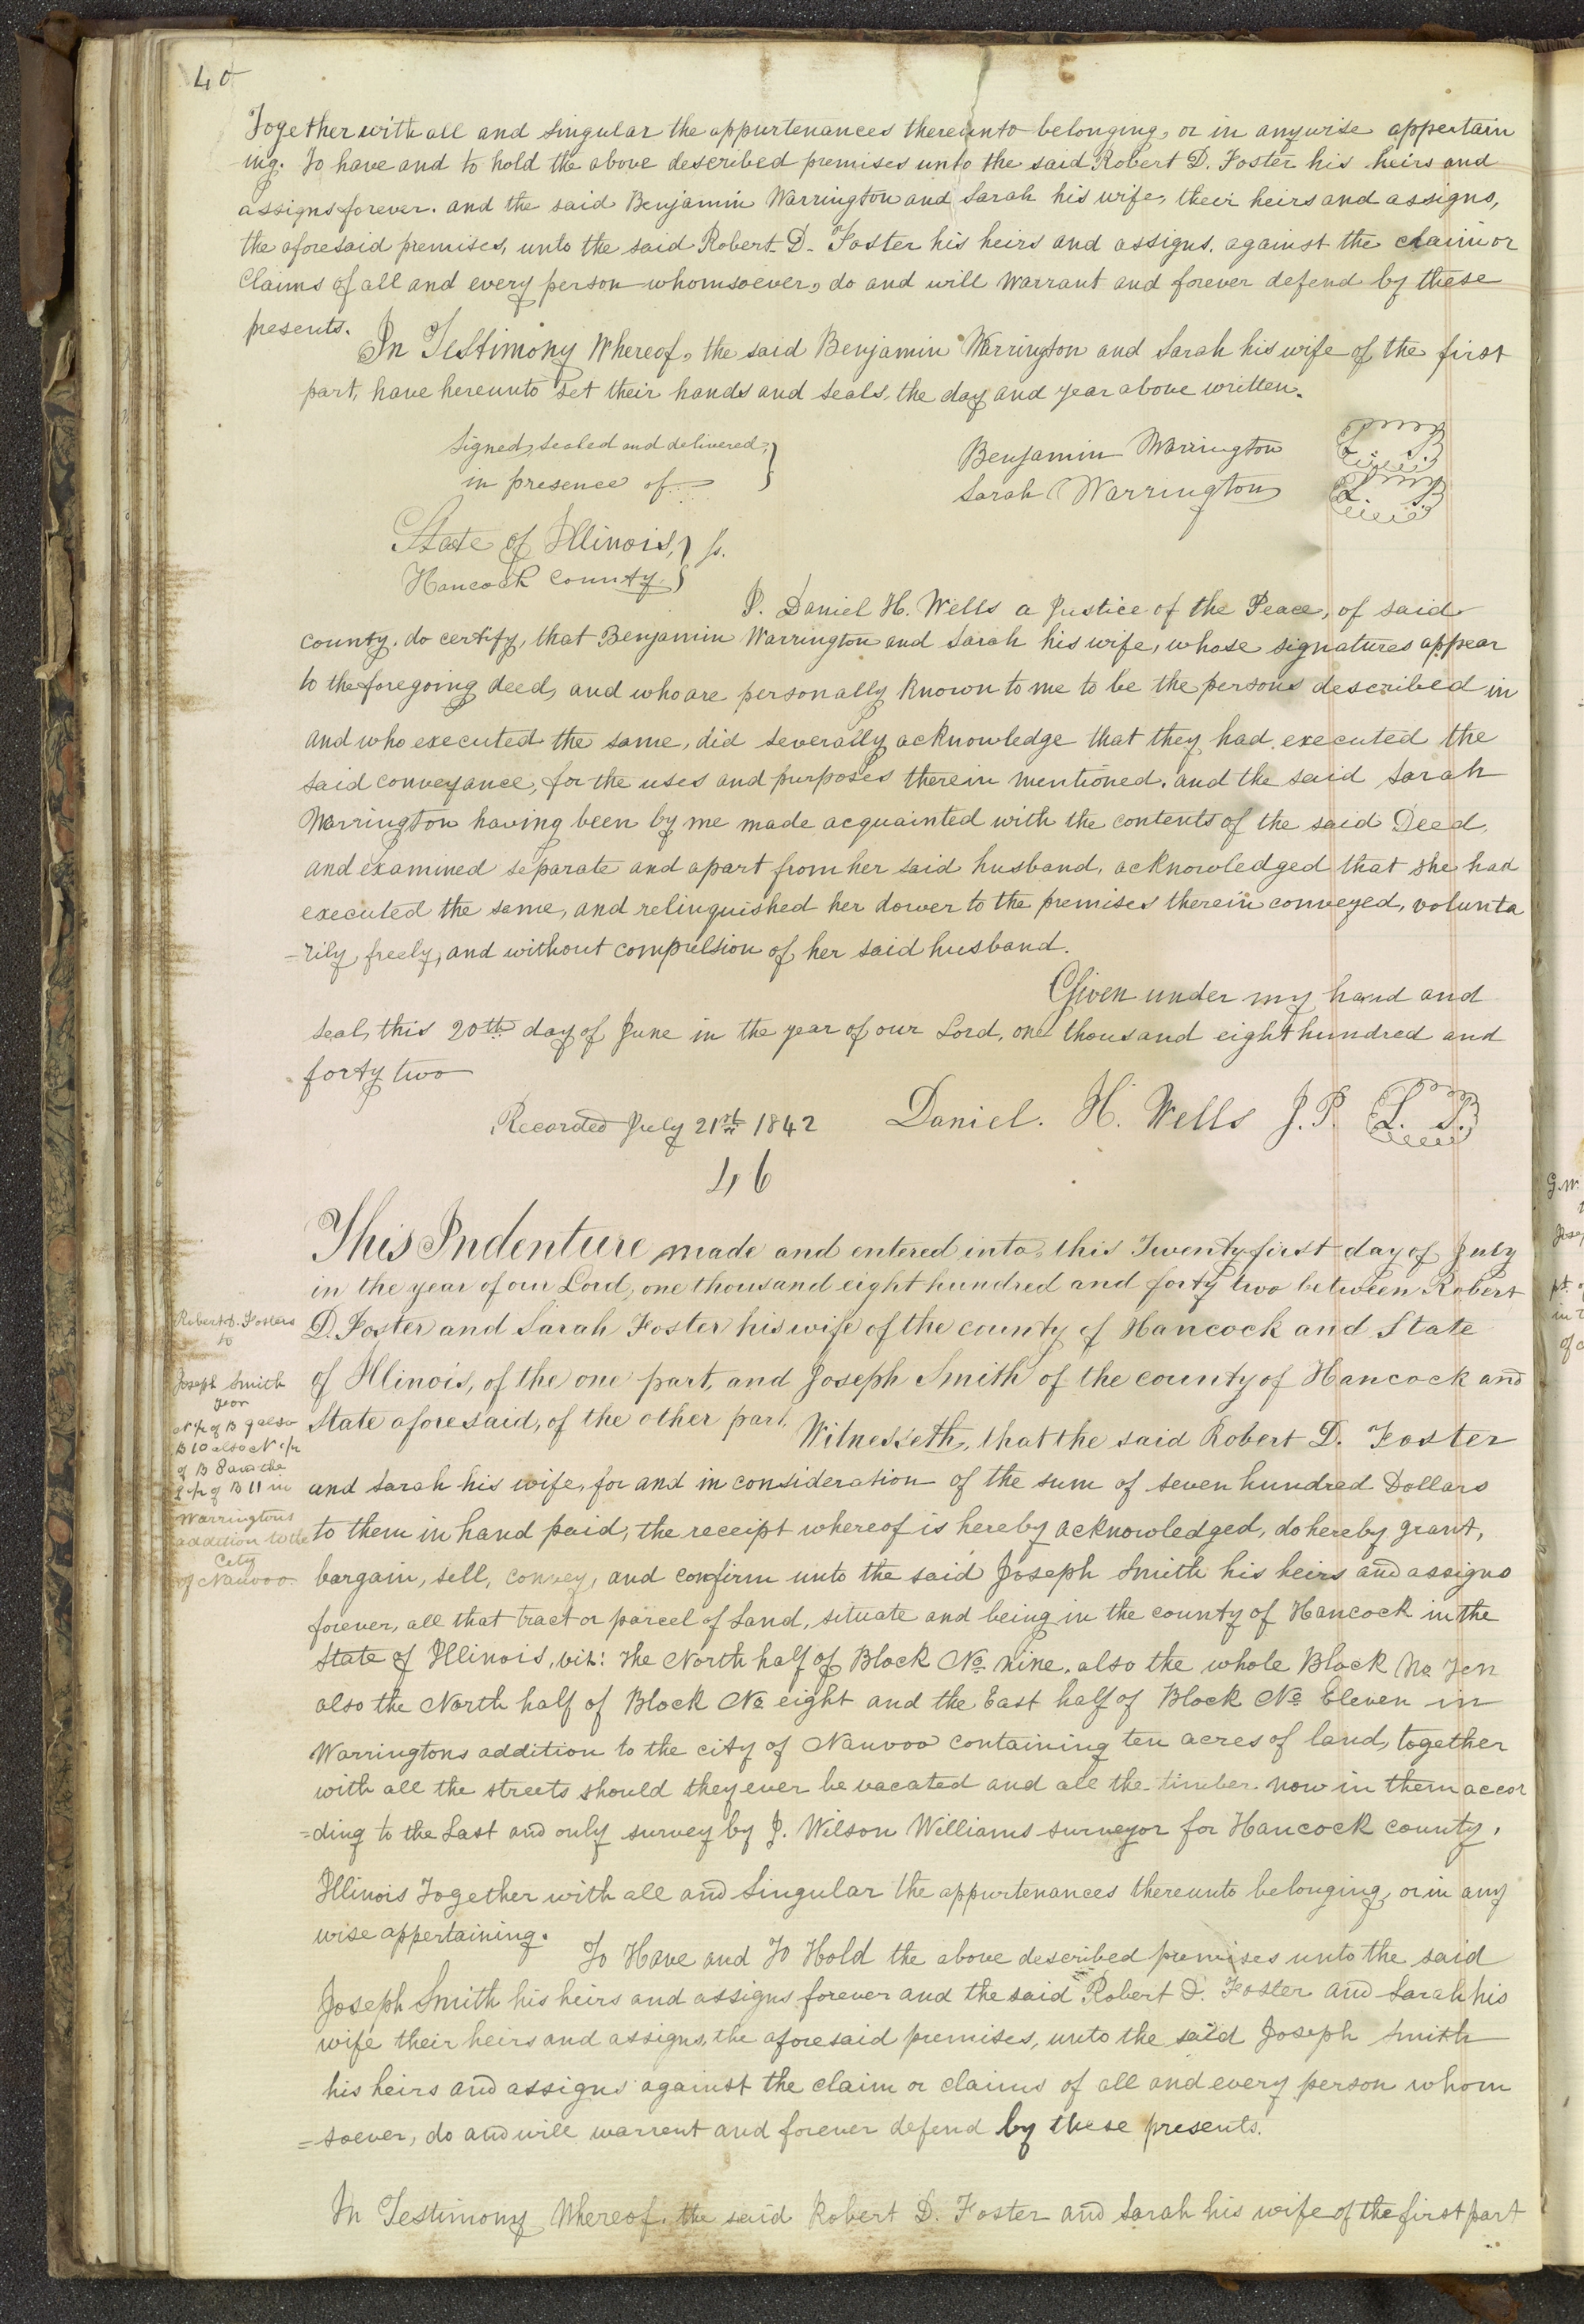 40
Together with all and singular the appurtenances thereunto belonging, or in anywise appertain
ing. To have and to hold the above described premises unto the said Robert D. Foster his heirs and
assigns forever. and the said Benjamin Warrington and Sarah his wife, their heirs and assigns,
the aforesaid premises, unto the said Robert D. Foster his heirs and assigns. against the claim or
Claims of all and every person whomsoever, do and will warrant and forever defend by these
presents.
In Testimony Whereof, the said Benjamin Warrington and Sarah his wife of the first
part, have hereunto set their hands and seals, the day and year above written.
Signed, sealed and delivered,
in presence of
Benjamin Warrington L. S.
Sarah Warrington L. S.
State of Illinois, } ss.
Hancock County. }
I. Daniel H. Wells a Justice of the Peace, of said
county. do certify, that Benjamin Warrington and Sarah his wife, whose signatures appear
to the foregoing deed, and who are personally known to me to be the persons described in
and who executed the same, did severally acknowledge that they had executed the
said conveyance, for the uses and purposes therein mentioned. and the said Sarah
Warrington having been by me made acquainted with the contents of the said Deed,
and examined separate and apart from her said husband, acknowledged that she had
executed the same, and relinquished her dower to the premises therein conveyed, volunta
=rily, freely, and without compulsion of her said husband.
Given under my hand and
seal, this 20th day of June in the year of our Lord, one thousand eight hundred and
forty two
Recorded July 21st 1842 Daniel. H. Wells J.P. L. S.
46
This Indenture made and entered into, this Twenty first day of July
in the year of our Lord, one thousand eight hundred and forty two between Robert
D. Foster and Sarah Foster his wife of the county of Hancock and State
of Illinois, of the one part, and Joseph Smith of the county of Hancock and
State aforesaid, of the other part.
Witnesseth, that the said Robert D. Foster
and Sarah his wife, for and in consideration of the sum of seven hundred Dollars
to them in hand paid, the receipt whereof is hereby acknowledged, do hereby grant,
bargain, sell, convey, and confirm unto the said Joseph Smith his heirs and assigns
forever, all that tract or parcel of Land, situate and being in the county of Hancock in the
State of Illinois, viz: The North half of Block No nine. also the whole Block No Ten
also the North half of Block No eight and the East half of Block No Eleven in
Warringtons addition to the city of Nauvoo containing ten acres of land, together
with all the streets should they ever be vacated and all the timber now in them accor
=ding to the Last and only survey by J. Wilson Williams surveyor for Hancock county,
Illinois Together with all and Singular the appurtenances thereunto belonging, or in any
wise appertaining.
To Have and To Hold the above described premises unto the said
Joseph Smith his heirs and assigns forever and the said Robert D. Foster and Sarah his
wife their heirs and assigns, the aforesaid premises, unto the said Joseph Smith
his heirs and assigns against the claim or claims of all and every person whom
=soever, do and will warrent and forever defend by these presents.
In Testimony Whereof. the said Robert D. Foster and Sarah his wife of the first part
Robert D. Fosters
to
Joseph Smith
N ½ of B 9 also
B 10 also N ½
of B 8 and the
E ½ of B 11 in
Warringtons
addition to the
City
of Nauvoo